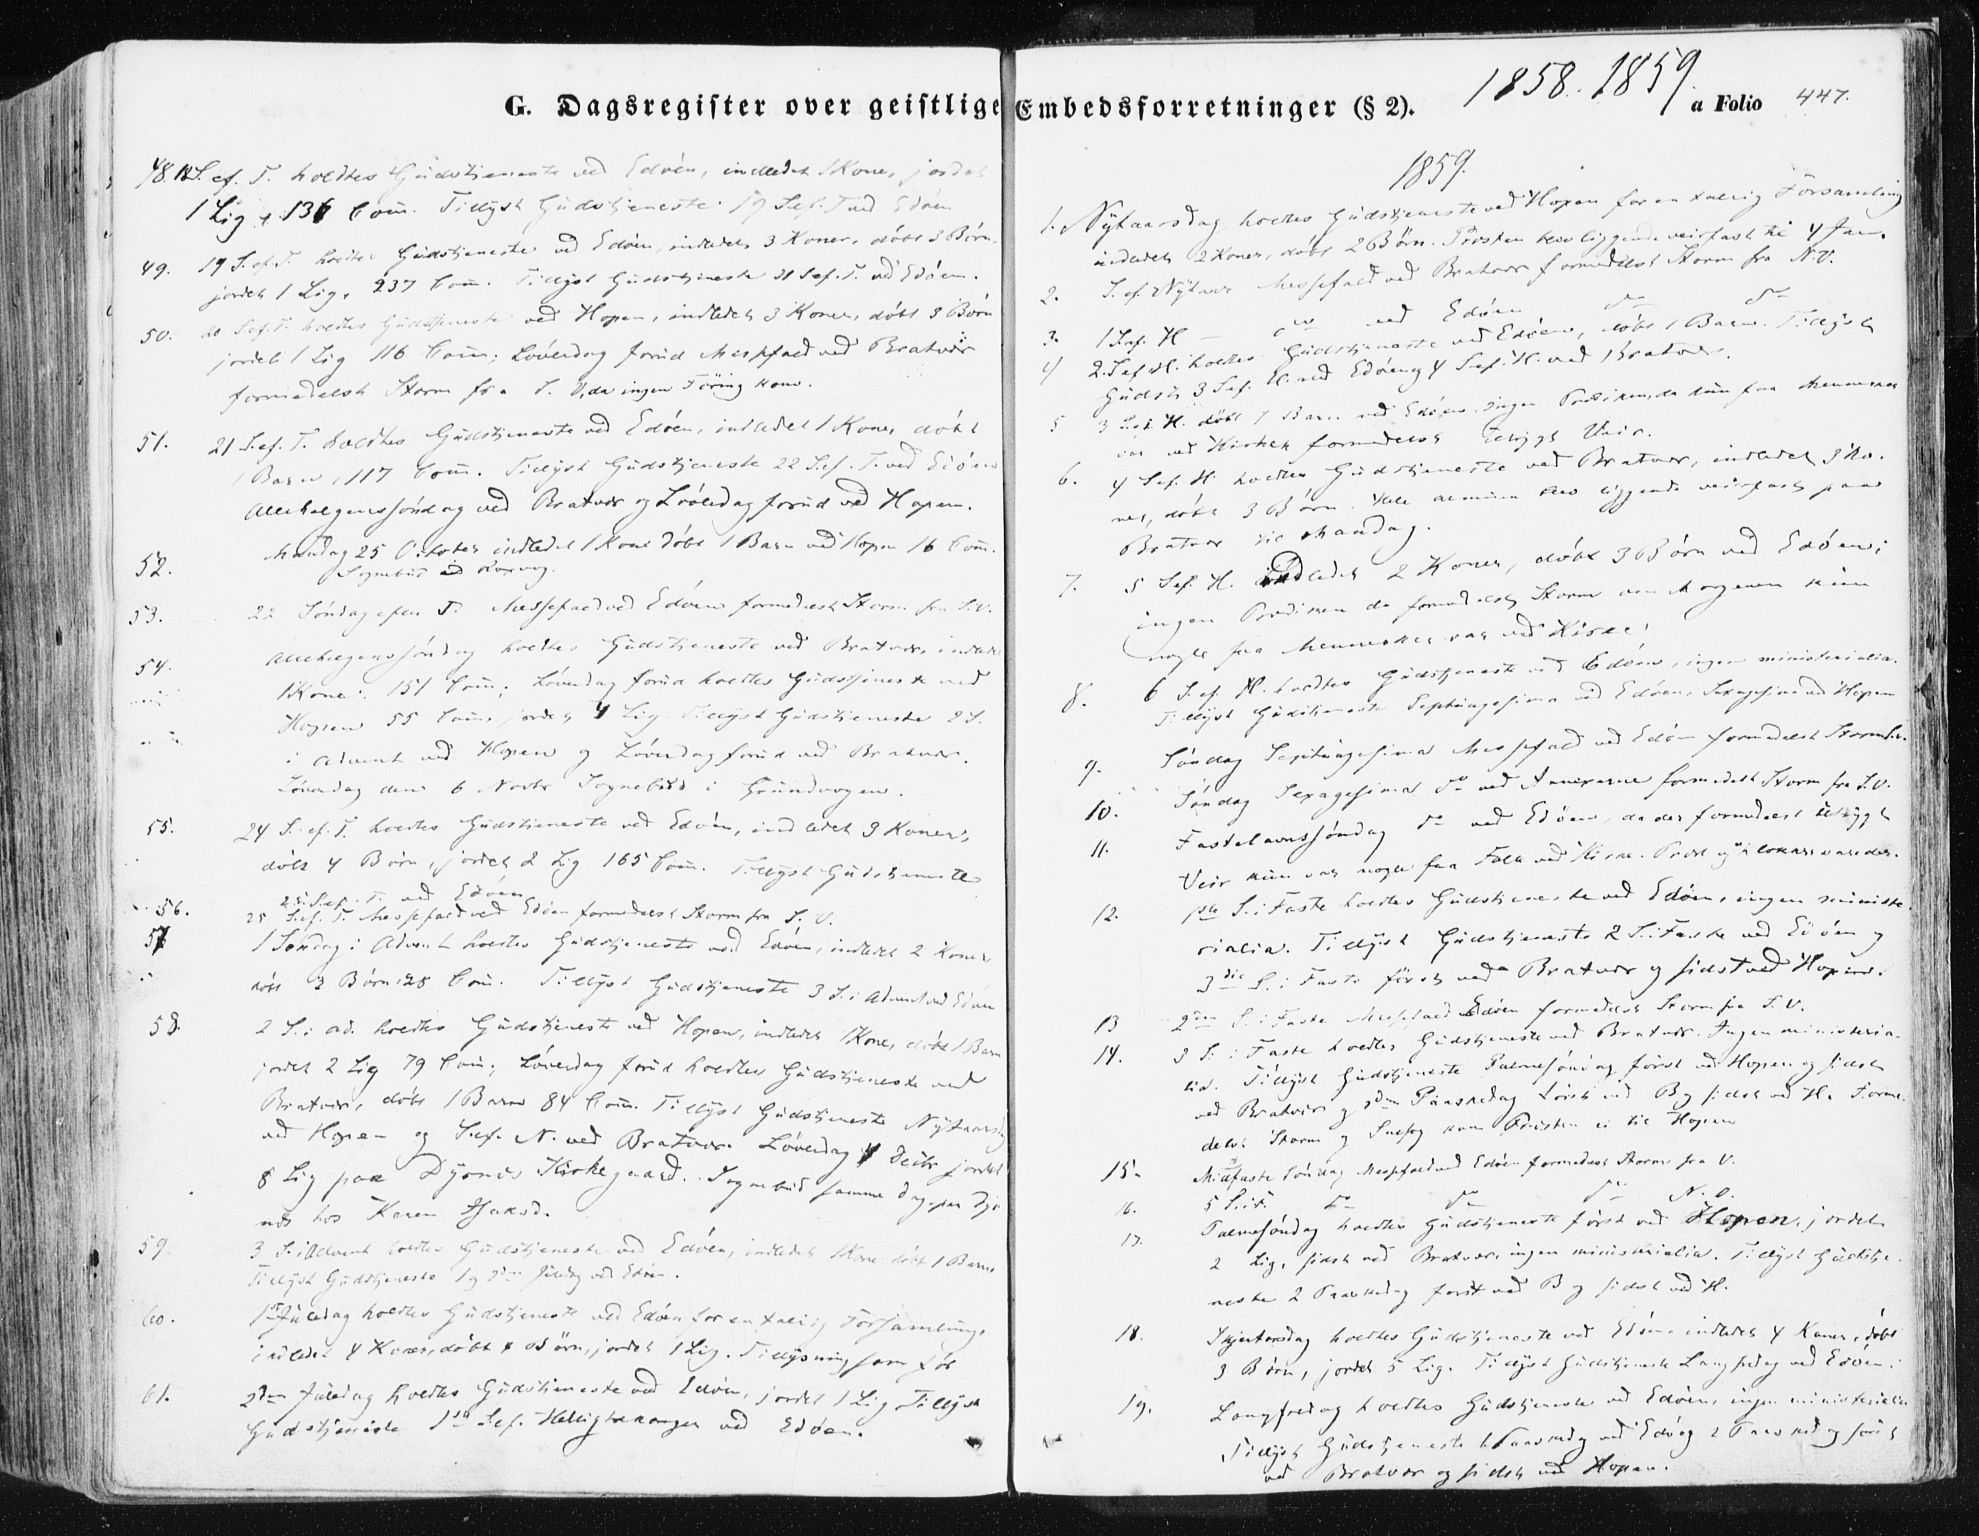 G. Dagsregister over geistlige Embedsforretninger (§ 2). 1858. 1859. a Folio 447.
48. 18 S. ef. T. holdtes Gudstjeneste ved Edöen, indledet 1 Kone, jordet
1 Lig, 136 Com. Tillyst Gudstjeneste 19 S. ef. T. ved Edöen
49. 19 S. ef. T. holdtes Gudstjeneste ved Edöen, indledet 3 Koner, döbt 3 Börn
jordet 1 Lig, 237 Com. Tillyst Gudstjeneste 21 S. ef. T. ved Edöen.
50. 20 S. ef. T. holdtes Gudstjeneste ved Hopen, indledet 3 Koner, döbt 3 Börn
jordet 1 Lig 116 Com; Löverdag forud Messefald ved Bratvær
formedelst Storm fra S. V, da ingen Föring kom.
51. 21 S. ef. T. holdtes Gudstjeneste ved Edöen, indledet 1 Kone, döbt
1 Barn, 117 Com. Tillyst Gudstjeneste 22 S. ef. T. ved Edöen
Allehelgenssöndag ved Bratvær og Löverdag forud ved Hopen.
52. Mandag 25 October indledet 1 Kone döbt 1 Barn ved Hopen 16 Com.
Sognebud
53. 22 Söndag efter T. Messefald ved Edöen formedelst Storm fra S. V.
54. Allehelgenssöndag holdtes Gudstjeneste ved Bratvær, indledet
1 Kone. 151 Com; Löverdag forud holdtes Gudstjeneste ved
Hopen 55 Com, jordet 4 Lig. Tillyst Gudstjeneste 2 S.
i Advent ved Hopen og Löverdag forud ved Bratvær.
Löverdag den 6 Novbr Sognebud i Grundvogen.
55. 24 S. ef. T. holdtes Gudstjeneste ved Edöen, indledet 3 Koner,
döbt 4 Börn, jordet 2 Lig 165 Com. Tillyst Gudstjeneste
25 S. ef. T. ved Edöen
56. 25 S. ef. T. Messefald ved Edöen formedelst Storm fra S. V.
57 1 Söndag i Advent holdtes Gudstjeneste ved Edöen, indledet 2 Koner
döbt 3 Börn 28 Com. Tillyst Gudstjeneste 3 S. i Advent ved Edöen
58. 2 S. i Ad. holdtes Gudstjeneste ved Hopen, indledet 1 Kone, döbt 1 Barn
jordet 2 Lig 79 Com; Löverdag forud holdtes Gudstjeneste ved
Bratvær, döbt 1 Barn 84 Com. Tillyst Gudstjeneste Nytaarsdag
ved Hopen og S. ef. N. ved Bratvær. Löverdag 4 Decbr jordet
8 Lig paa Dyrnes Kirkegaard. Sognebud samme Dag paa Dyr
nes hos Karen
59. 3 S. i Advent holdtes Gudstjeneste ved Edöen, indledet 1 Kone döbt 1 Barn
Tillyst Gudstjeneste 1 og 2den Juledag ved Edöen.
60. 1ste Juledag holdtes Gudstjeneste ved Edöen for en talrig Forsamling,
indledet 4 Koner, döbt 4 Börn, jordet 1 Lig. Tillysning som för
61. 2den Juledag holdtes Gudstjeneste ved Edöen, jordet 1 Lig. Tillyst
Gudstjeneste 1ste S. ef. Helligtrekonger ved Edöen.
1859.
1. Nytaarsdag holdtes Gudstjeneste ved Hopen for en talrig Forsamling
indledet 2 Koner, döbt 2 Börn. Præsten blev liggende veirfast til 4 Jan.
2. S. ef. Nytaar Messefald ved Bratvær formedelst Storm fra N. V.
3. 1 S. ef. H. – do ved Edöen do do
4 2. S. ef. H. holdtes Gudstjeneste ved Edöen, döbt 1 Barn. Tillyst
Gudstj. 3 S. ef. H. ved Edöen og 4 S. ef. H. ved Bratvær.
5 3 S. ef. H. döbt 1 Barn ved Edöen, ingen Prædiken, da kun faa Mennesker
var ved Kirken formedelst Veir.
6. 4 S. ef. H. holdtes Gudstjeneste ved Bratvær, indledet 3 Ko-
ner, döbt 3 Börn. blev liggende veirfast paa
Bratvær til Mandag.
7. 5 S. ef. H. indledet 2 Koner, döbt 3 Börn ved Edöen;
ingen Prædiken da formedelst Storm om Morgenen kun
nogle faa Mennesker var ved Kirke.
8. 6 S. ef. H. holdtes Gudstjeneste ved Edöen, ingen ministerialia.
Tillyst Gudstjeneste Septuagesima ved Edöen, Sexagesima ved Hopen
9. Söndag Septuagesima Messefald ved Edöen formedelst Storm S. V.
10. Söndag Sexagesima do ved Annexerne formedelst Storm fra S. V.
11. Fastelavnssöndag do ved Edöen, da der formedelst
Veir kun var nogle faa Folk ved Kirke.
12. 1ste S. i Faste holdtes Gudstjeneste ved Edöen, ingen ministe-
rialia. Tillyst Gudstjeneste 2 S. i Faste ved Edöen og
3die S. i Faste först ved Bratvær og sidst ved Hopen.
13 2den S. i Faste Messefald Edöen formedelst Storm fra S. V.
14. 3 S. i Faste holdtes Gudstjeneste ved Bratvær. Ingen ministeria-
lia. Tillyst Gudstjeneste Palmesöndag först ved Hopen og sidst
ved Bratvær og 2den Paaskedag först ved B og sidst ved H. Forme-
delst Storm og Snefog kom Præsten ei til Hopen
15. Midfaste Söndag Messefald ved Edöen formedelst Storm fra V.
16. 5 S. i F. do do do N. V.
17. Palmesöndag holdtes Gudstjeneste först ved Hopen, jordet
2 Lig, sidst ved Bratvær, ingen ministerialia. Tillyst Gudstje-
neste 2 Paaskedag först ved B og sidst ved H.
18. Skjertorsdag holdtes Gudstjeneste ved Edöen, indledet 4 Koner, döbt
3 Börn, jordet 5 Lig. Tillyst Gudstjeneste Langfredag ved Edöen.
19. Langfredag holdtes Gudstjeneste ved Edöen, ingen ministerialia
Tillyst Gudstjeneste 1 Paaskedag ved Edö og 2 Paaskedag först
ved Bratvær og sidst ved Hopen.